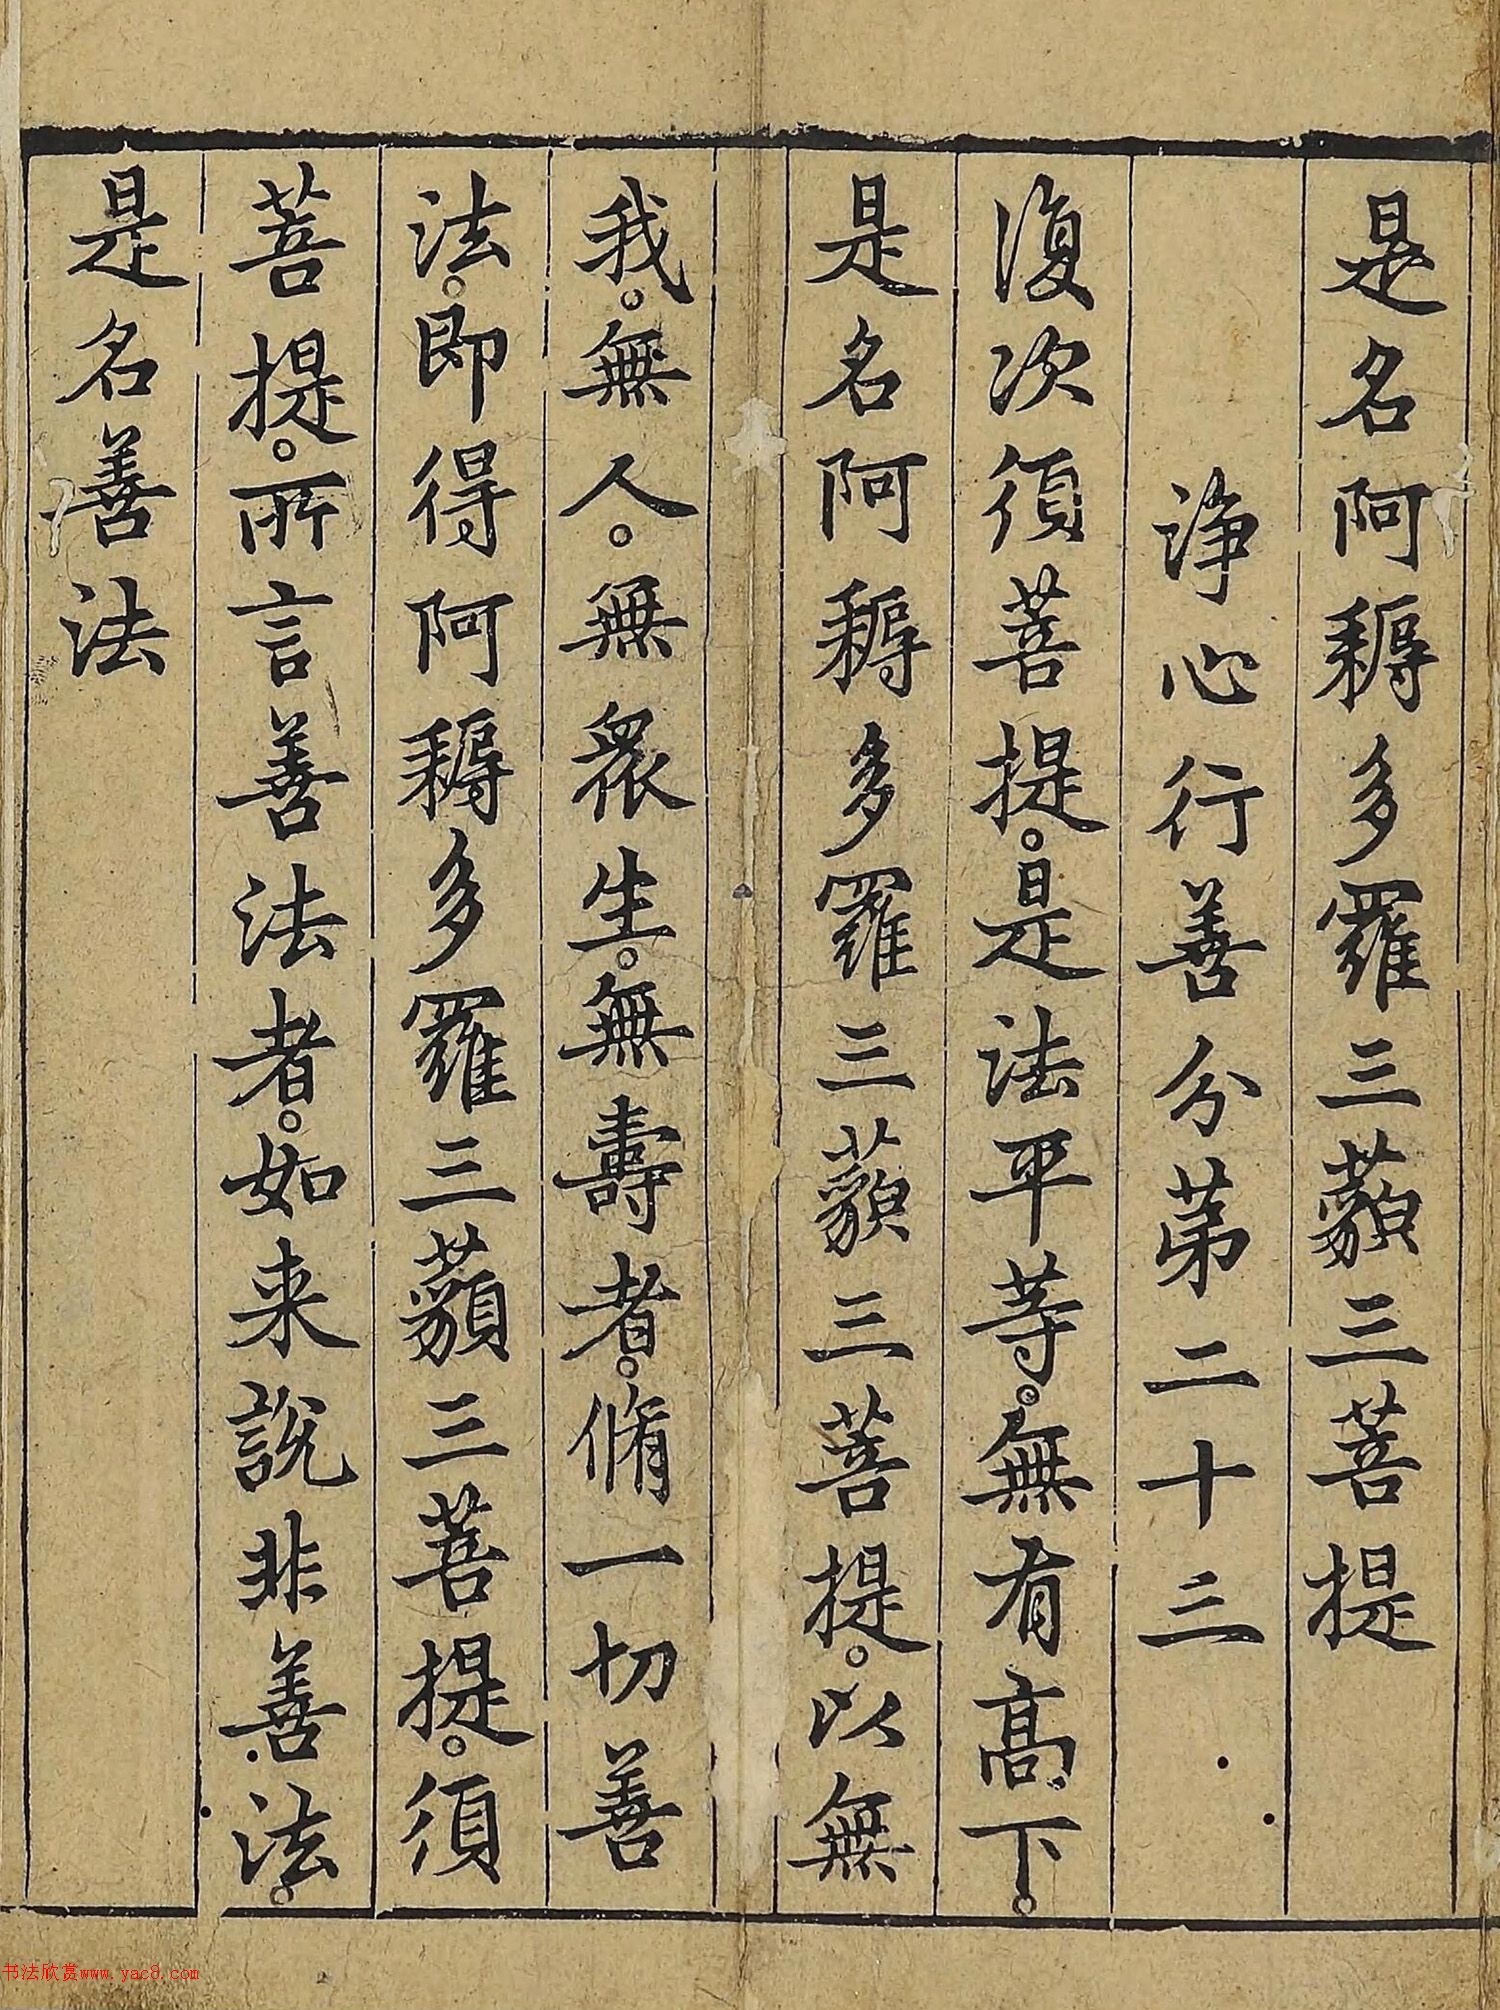 是名阿耨多羅三藐三菩提
淨心行善分第二十三
復次須菩提。是法平等。無有高下。
是名阿耨多羅三藐三菩提。以無
我。無人。無眾生。無壽者。脩一切善
法。即得阿耨多羅三藐三菩提。須
菩提。所言善法者。如来說非善法。
是名善法
书法欣赏www.yac8.com